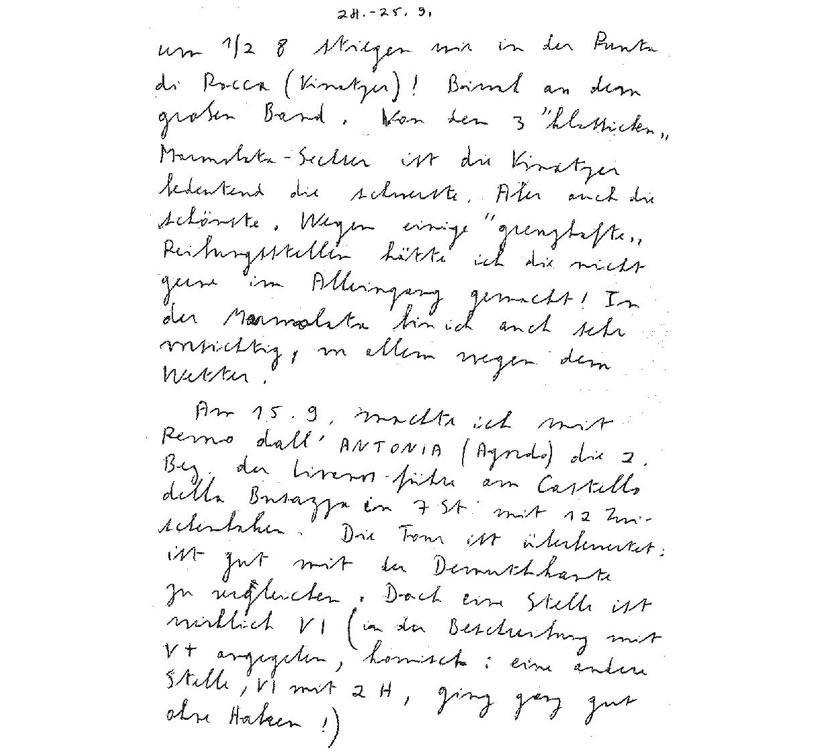 24.-25. 9.
um 1/2 8 stiegen wir in der Punta
di Rocca (Vinatzer)! Biwak an dem
großen Band. Von den 3 "klassischen"
Marmolata-Sechser ist die Vinatzer
bedeutend die schwerste. Aber auch die
schönste. Wegen einige "grenzhafte"
Reibungsstellen hätte ich die nicht
gerne im Alleingang gemacht! In
der Marmolata bin ich auch sehr
vorsichtig, vor allem wegen dem
Wetter.
Am 15. 9. machte ich mit
Remo dall' ANTONIA (Agordo) die 2.
Beg. der Livanos-führe am Castello
della Busazza in 7 St. mit 12 Zwi-
schenhaken. Die Tour ist überbewertet:
ist gut mit der Demuthkante
zu vergleichen. Doch eine Stelle ist
wirklich VI (in der Beschreibung mit
V+ angegeben, komisch: eine andere
Stelle, VI mit 2 H, ging ganz gut
ohne Haken!)